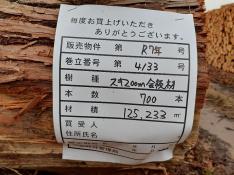 毎度お買上げいただき
ありがとうございます。
販売物件 第 R7年 号
巻立番号 第 4133 号
樹種 スギ200m 材
本数 700 本
材積 125,233 m³
買受人
住所氏名